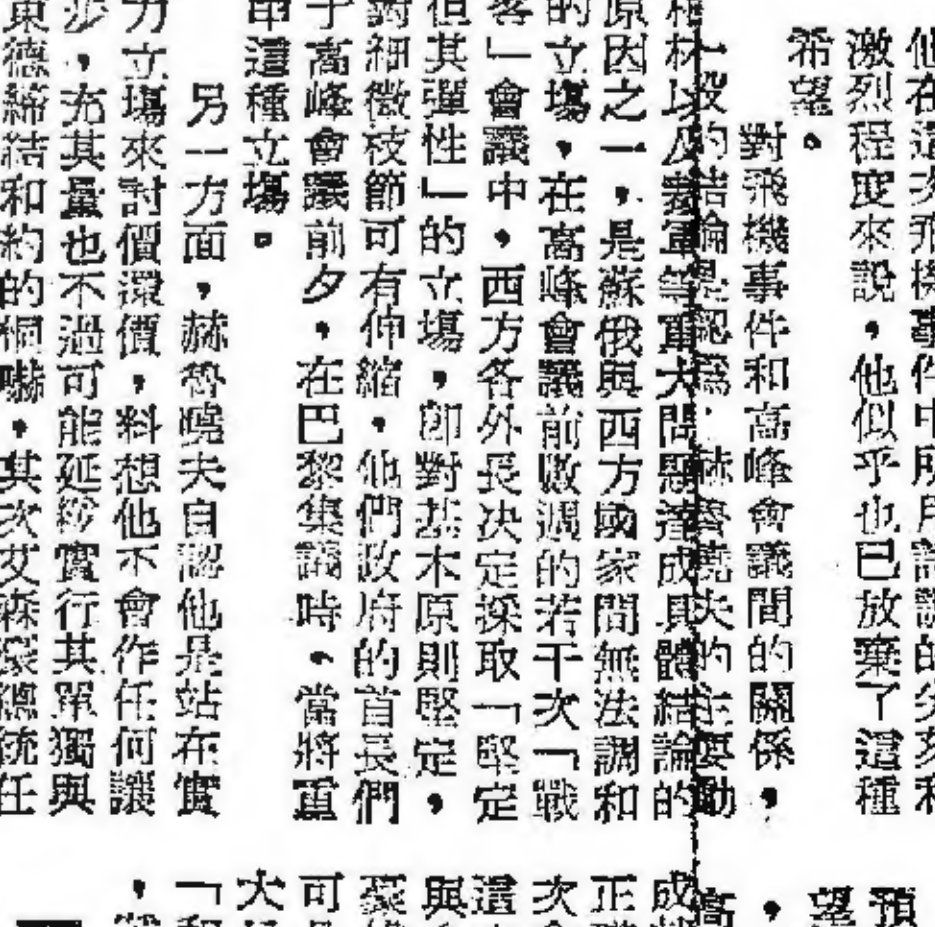 他在這次飛機事件中所用詞說的尖刻和
激烈程度來說，他似乎也已放棄了這種
希望。
對飛機事件和高峰會議間的關係，
一般的結論是認爲：赫魯曉夫的主要動
柏林以及裁軍等重大問題達成具體結論的
原因之一，是蘇俄與西方國家間無法調和
的立場，在高峰會議前數週的若干次「戰
客」會議中，西方各外長決定採取「堅定
但具彈性」的立場，即對基本原則堅定，
對細微枝節可有伸縮，他們政府的首長們
于高峰會議前夕，在巴黎集議時，當將重
申這種立場。
另一方面，赫魯曉夫自認他是站在實
力立場來討價還價，料想他不會作任何讓
步，充其量也不過可能延緩實行其單獨與
東德締結和約的恫嚇，其次艾森豪總統任
預
望
，
高
成
正
次
這
與
豪
可
大
「和
，